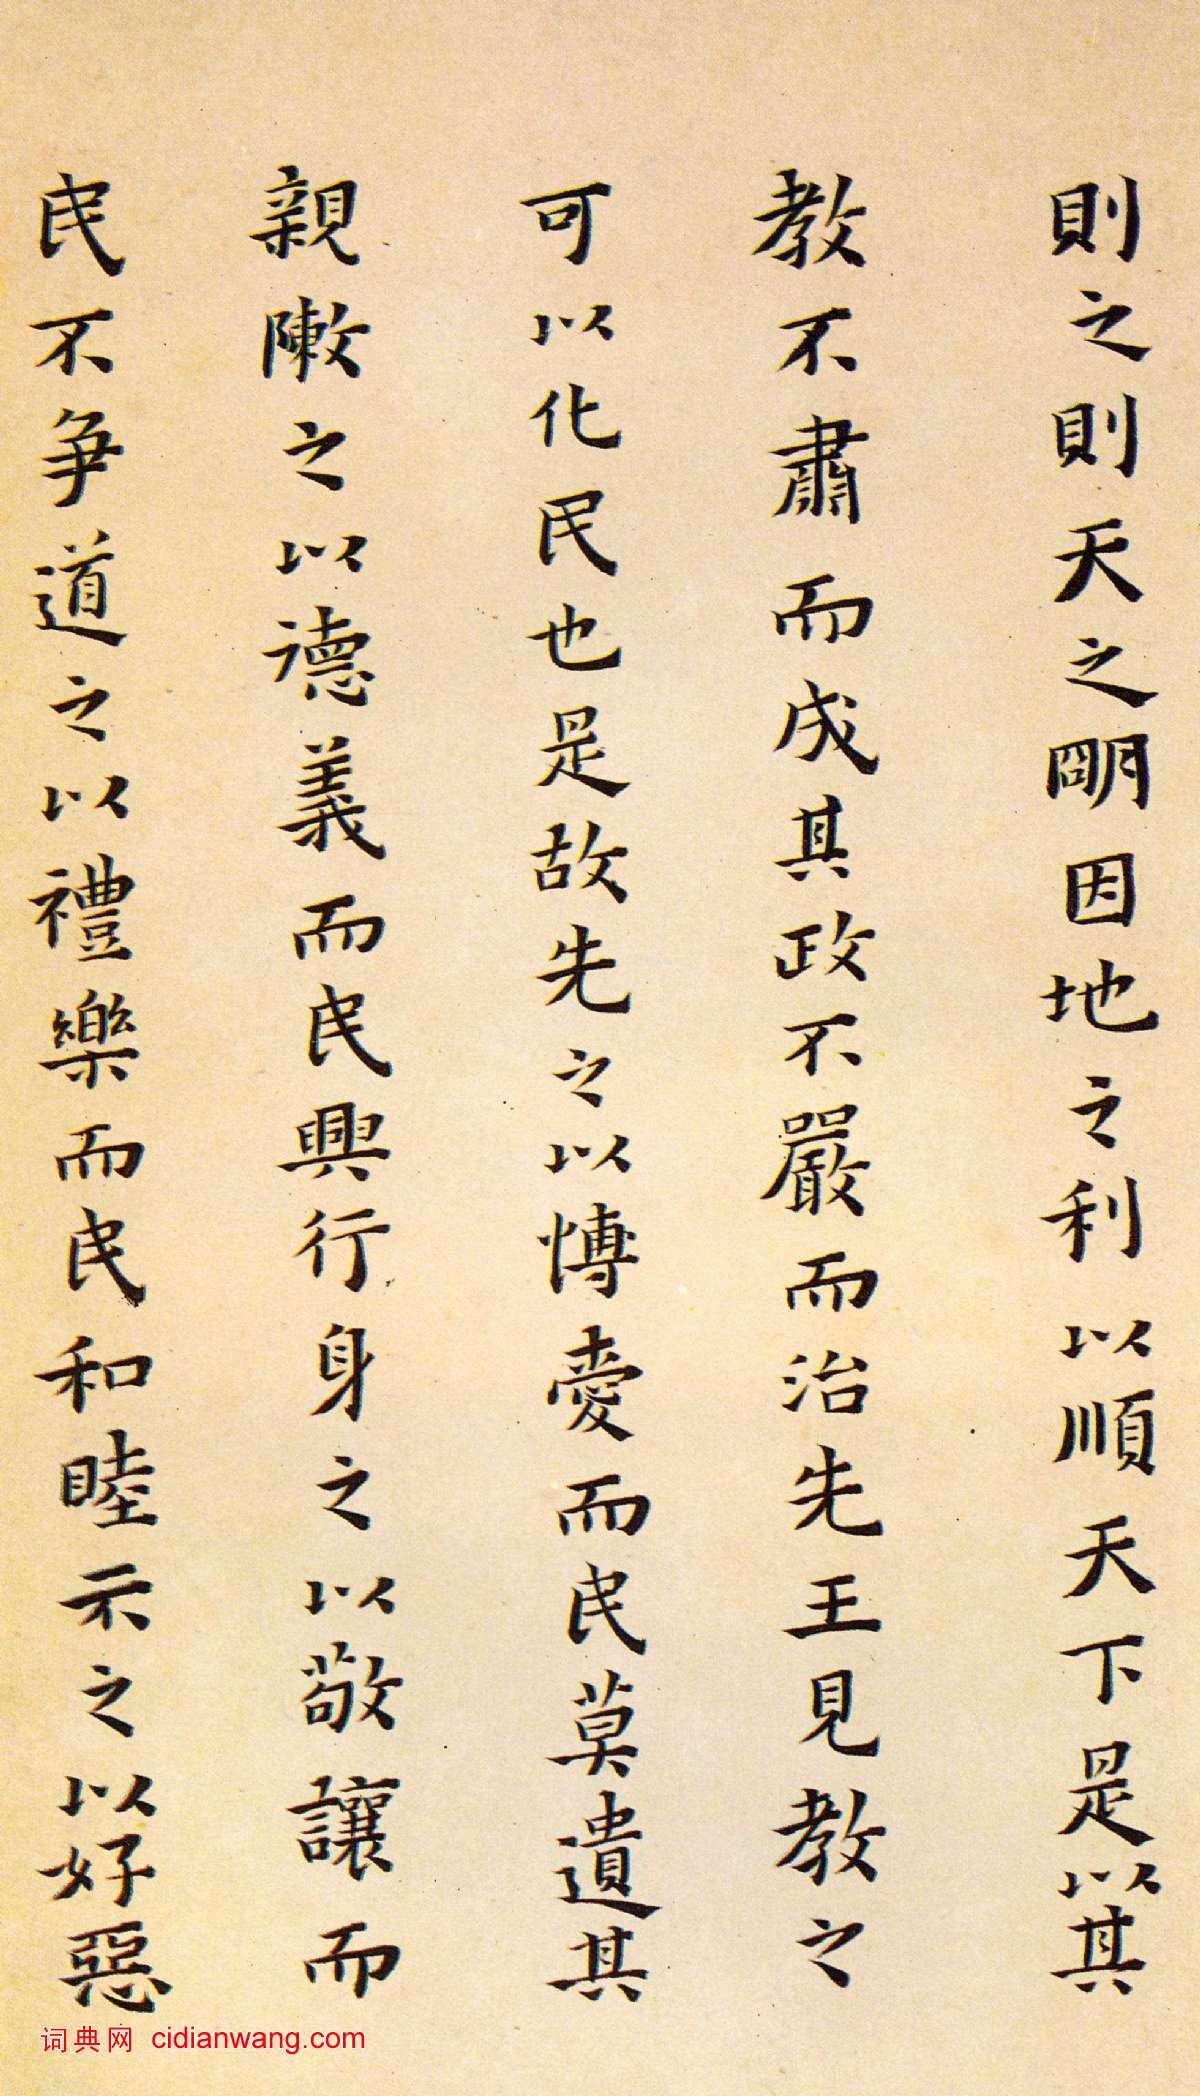 則之則天之朙因地之利以順天下是以其
教不肅而成其政不嚴而治先王見教之
可以化民也是故先之以愽愛而民莫遺其
親敶之以德義而民興行身之以敬讓而
民不爭道之以禮樂而民和睦示之以好惡
词典网 cidianwang.com